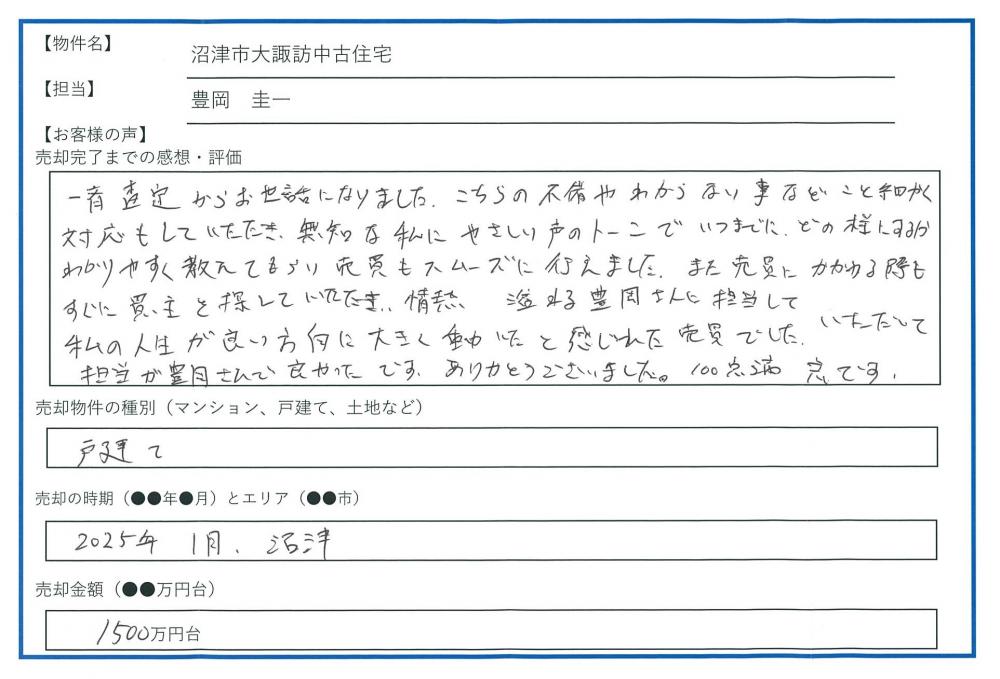 【物件名】
沼津市大諏訪中古住宅
【担当】
豊岡　圭一
【お客様の声】
売却完了までの感想・評価
一斉査定からお世話になりました。こちらの不備やわからない事などこと細かく
対応もしていただき、無知な私にやさしい声のトーンでいつまでに、どの様にするか
わかりやすく教えてもらい売買もスムーズに行えました。また売買にかかわる時も
すぐに買い主を探していただき、情熱 溢れる豊岡さんに担当して
いただいて
私の人生が良い方向に大きく動いたと感じれた売買でした。
担当が豊岡さんで良かったです。ありがとうございました。100点満点です。
売却物件の種別（マンション、戸建て、土地など）
戸建て
売却の時期（●●年●月）とエリア（●●市）
2025年 1月、沼津
売却金額（●●万円台）
1500万円台